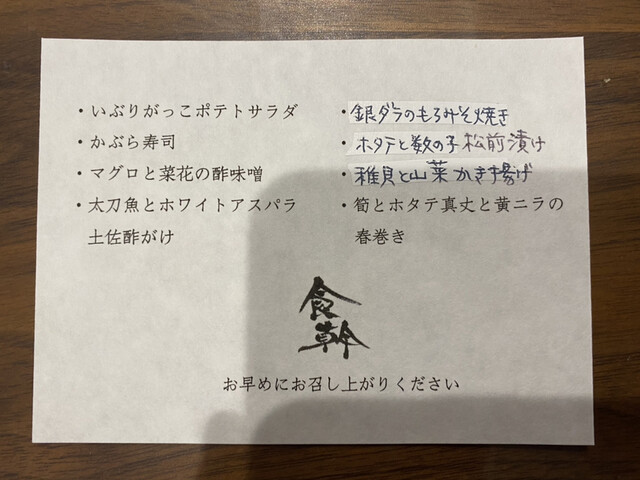 ・いぶりがっこポテトサラダ
・かぶら寿司
・マグロと菜花の酢味噌
・太刀魚とホワイトアスパラ
土佐酢がけ
・銀ダラのもろみそ焼き
・ホタテと数の子松前漬け
・稚貝と山菜かき揚げ
・筍とホタテ真丈と黄ニラの
春巻き
食
幹
お早めにお召し上がりください